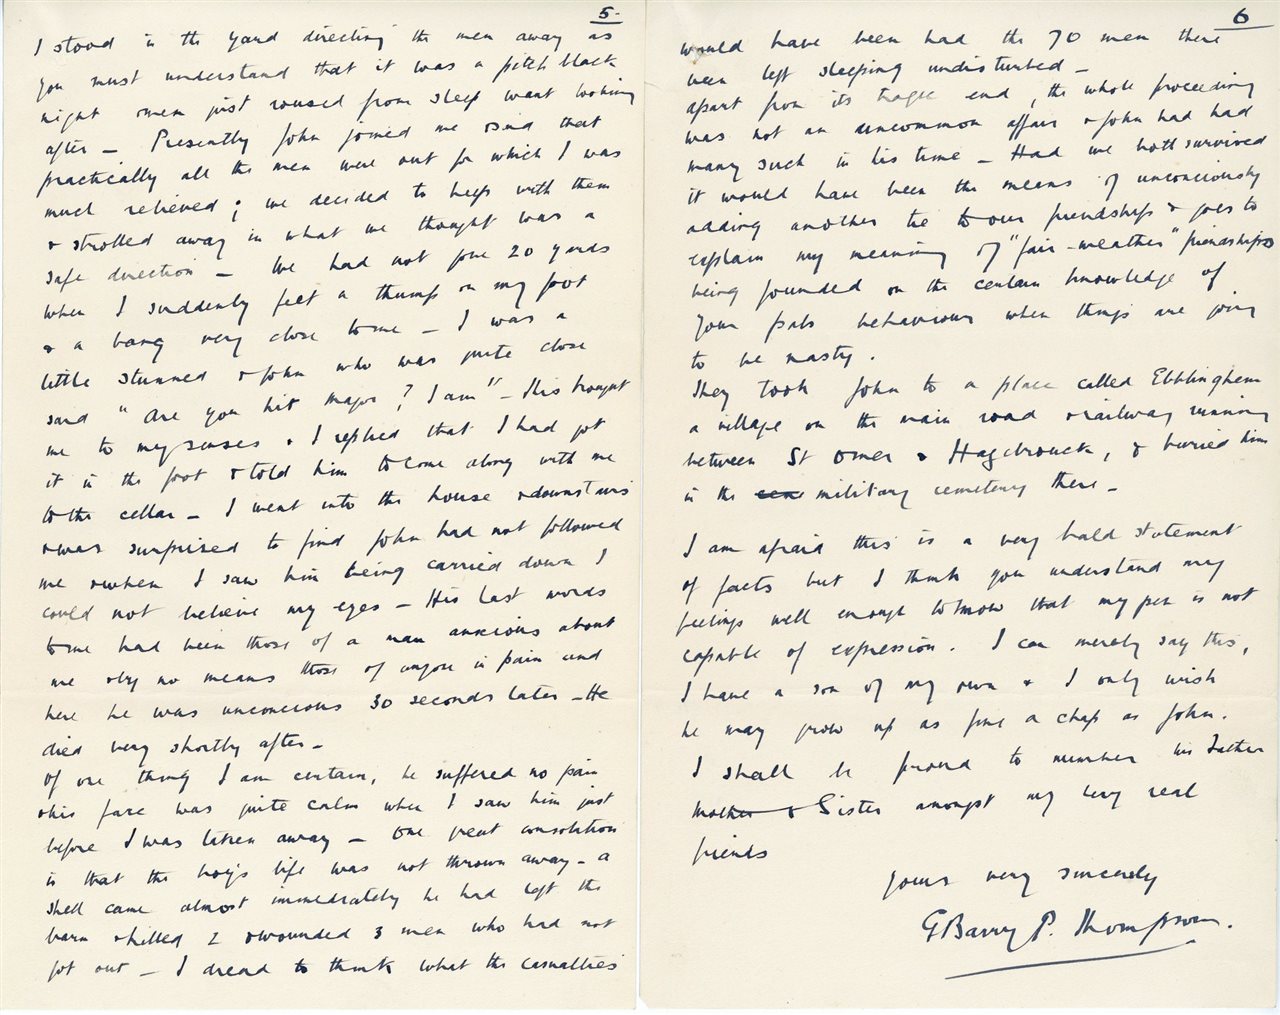 5.
I stood in the yard directing the men away as
you must understand that it was a pitch black
night & men just roused from sleep want looking
after — Presently John joined me & said that
practically all the men were out for which I was
much relieved; we decided to keep with them
& strolled away in what we thought was a
safe direction — We had not gone 20 yards
when I suddenly felt a thump on my foot
& a bang very close to me — I was a
little stunned & John who was quite close
said "Are you hit Major? I am" — This brought
me to my senses & I replied that I had got
it in the foot & told him to come along with me
to the cellar — I went into the house & downstairs
& was surprised to find John had not followed
me & when I saw him being carried down I
could not believe my eyes — His last words
to me had been those of a man anxious about
me & by no means those of anyone in pain and
here he was unconcious 30 seconds later — He
died very shortly after —
Of one thing I am certain, he suffered no pain
& his face was quite calm when I saw him just
before I was taken away — One great consolation
is that the boy's life was not thrown away — a
shell came almost immediately he had left the
barn & killed 2 & wounded 3 men who had not
got out — I dread to think what the casualties
6
would have been had the 70 men there
been left sleeping undisturbed —
apart from its tragic end, the whole proceeding
was not an uncommon affair & John had had
many such in his time — Had we both survived
it would have been the means of unconciously
adding another tie to our friendship & goes to
explain my meaning of "fair-weather" friendships
being founded on the certain knowledge of
your pals behaviour when things are going
to be nasty.
They took John to a place called Ebblinghem
a village on the main road & railway running
between St Omer & Hazebrouck, & buried him
in the military cemetery there —
I am afraid this is a very bald statement
of facts but I think you understand my
feelings well enough to know that my pen is not
capable of expression. I can merely say this,
I have a son of my own & I only wish
he may grow up as fine a chap as John.
I shall be proud to number his Father
Mother & Sister amongst my very real
friends
Yours very sincerely
G Barry P. Thompson.